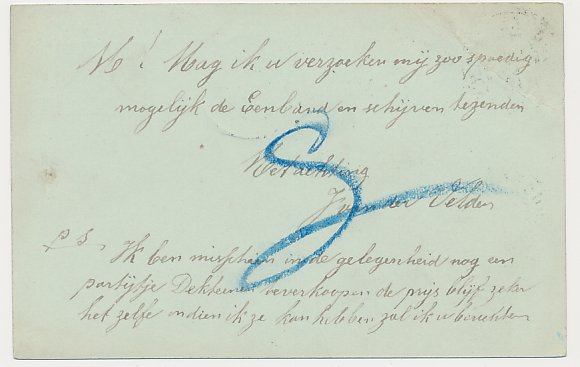 M! Mag ik u verzoeken mij zoo spoedig
mogelijk de Eenband en schijven tezenden
Met achting
J van der Velden
P S, Ik ben misschien in de gelegenheid nog een
partijtje Dekkenen veverkoopen de prijs blijf zeker
het zelfe indien ik ze kan hebben zal ik u berichten